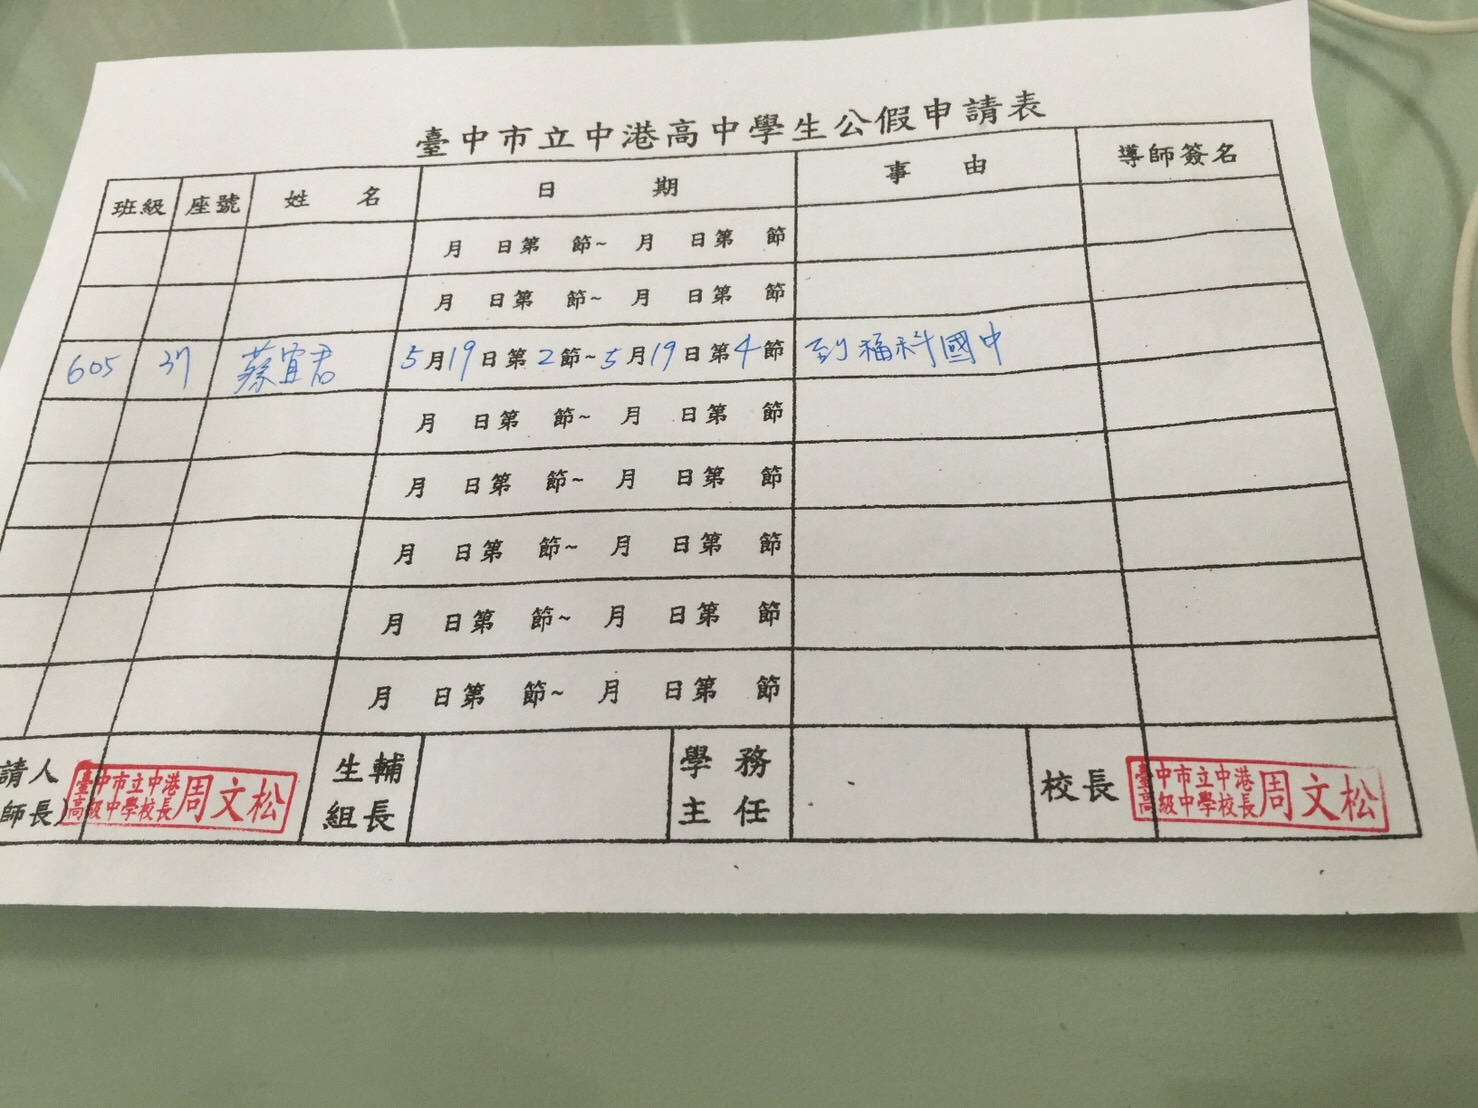 臺中市立中港高中學生公假申請表
班級 座號 姓 名 日 期 事 由 導師簽名
月 日第 節~ 月 日第 節
月 日第 節~ 月 日第 節
605 37 蔡宜君 5月19日第2節~5月19日第4節 到福科國中
月 日第 節~ 月 日第 節
月 日第 節~ 月 日第 節
月 日第 節~ 月 日第 節
月 日第 節~ 月 日第 節
月 日第 節~ 月 日第 節
請人
師長)
臺中市立中港
高級中學校長
周文松
生輔
組長
學務
主任
校長
臺中市立中港
高級中學校長
周文松